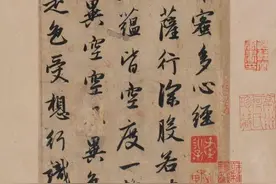 蜜多心經
薩行深般若
蘊皆空度一
異空空不異色
是色受想行識